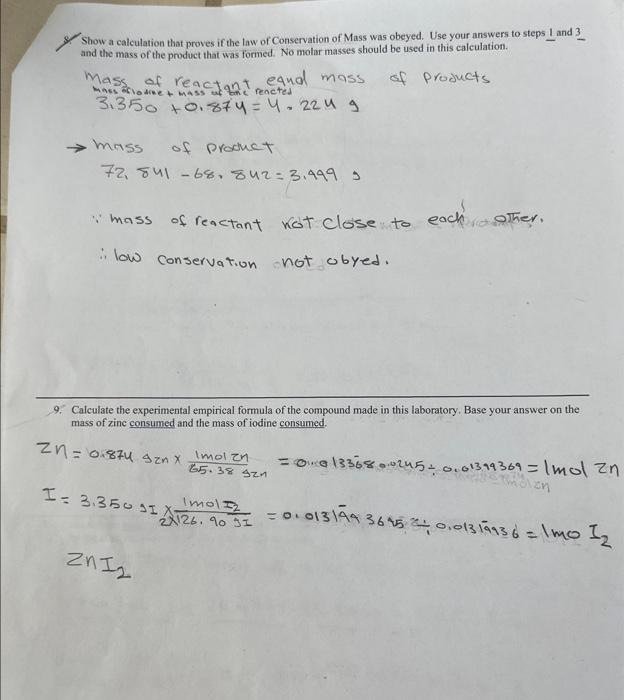 8. Show a calculation that proves if the law of Conservation of Mass was obeyed. Use your answers to steps 1 and 3
and the mass of the product that was formed. No molar masses should be used in this calculation.
Mass of reactant equal mass of products
mass of iodine + mass of zinc reacted
3.350 + 0.874 = 4.224 g
→ mass of product
72.841 - 68.842 = 3.999 g
∵ mass of reactant not close to each other.
∴ low conservation not obyed.
9. Calculate the experimental empirical formula of the compound made in this laboratory. Base your answer on the
mass of zinc consumed and the mass of iodine consumed.
Zn = 0.874 gzn × 1mol Zn / 65.38 gzn = 0.0133680.0245 ÷ 0.01319369 = 1mol Zn
I = 3.350 gI × 1mol I2 / 2×126.90 gI = 0.01319936 ÷ 0.01319936 = 1mo I2
ZnI2